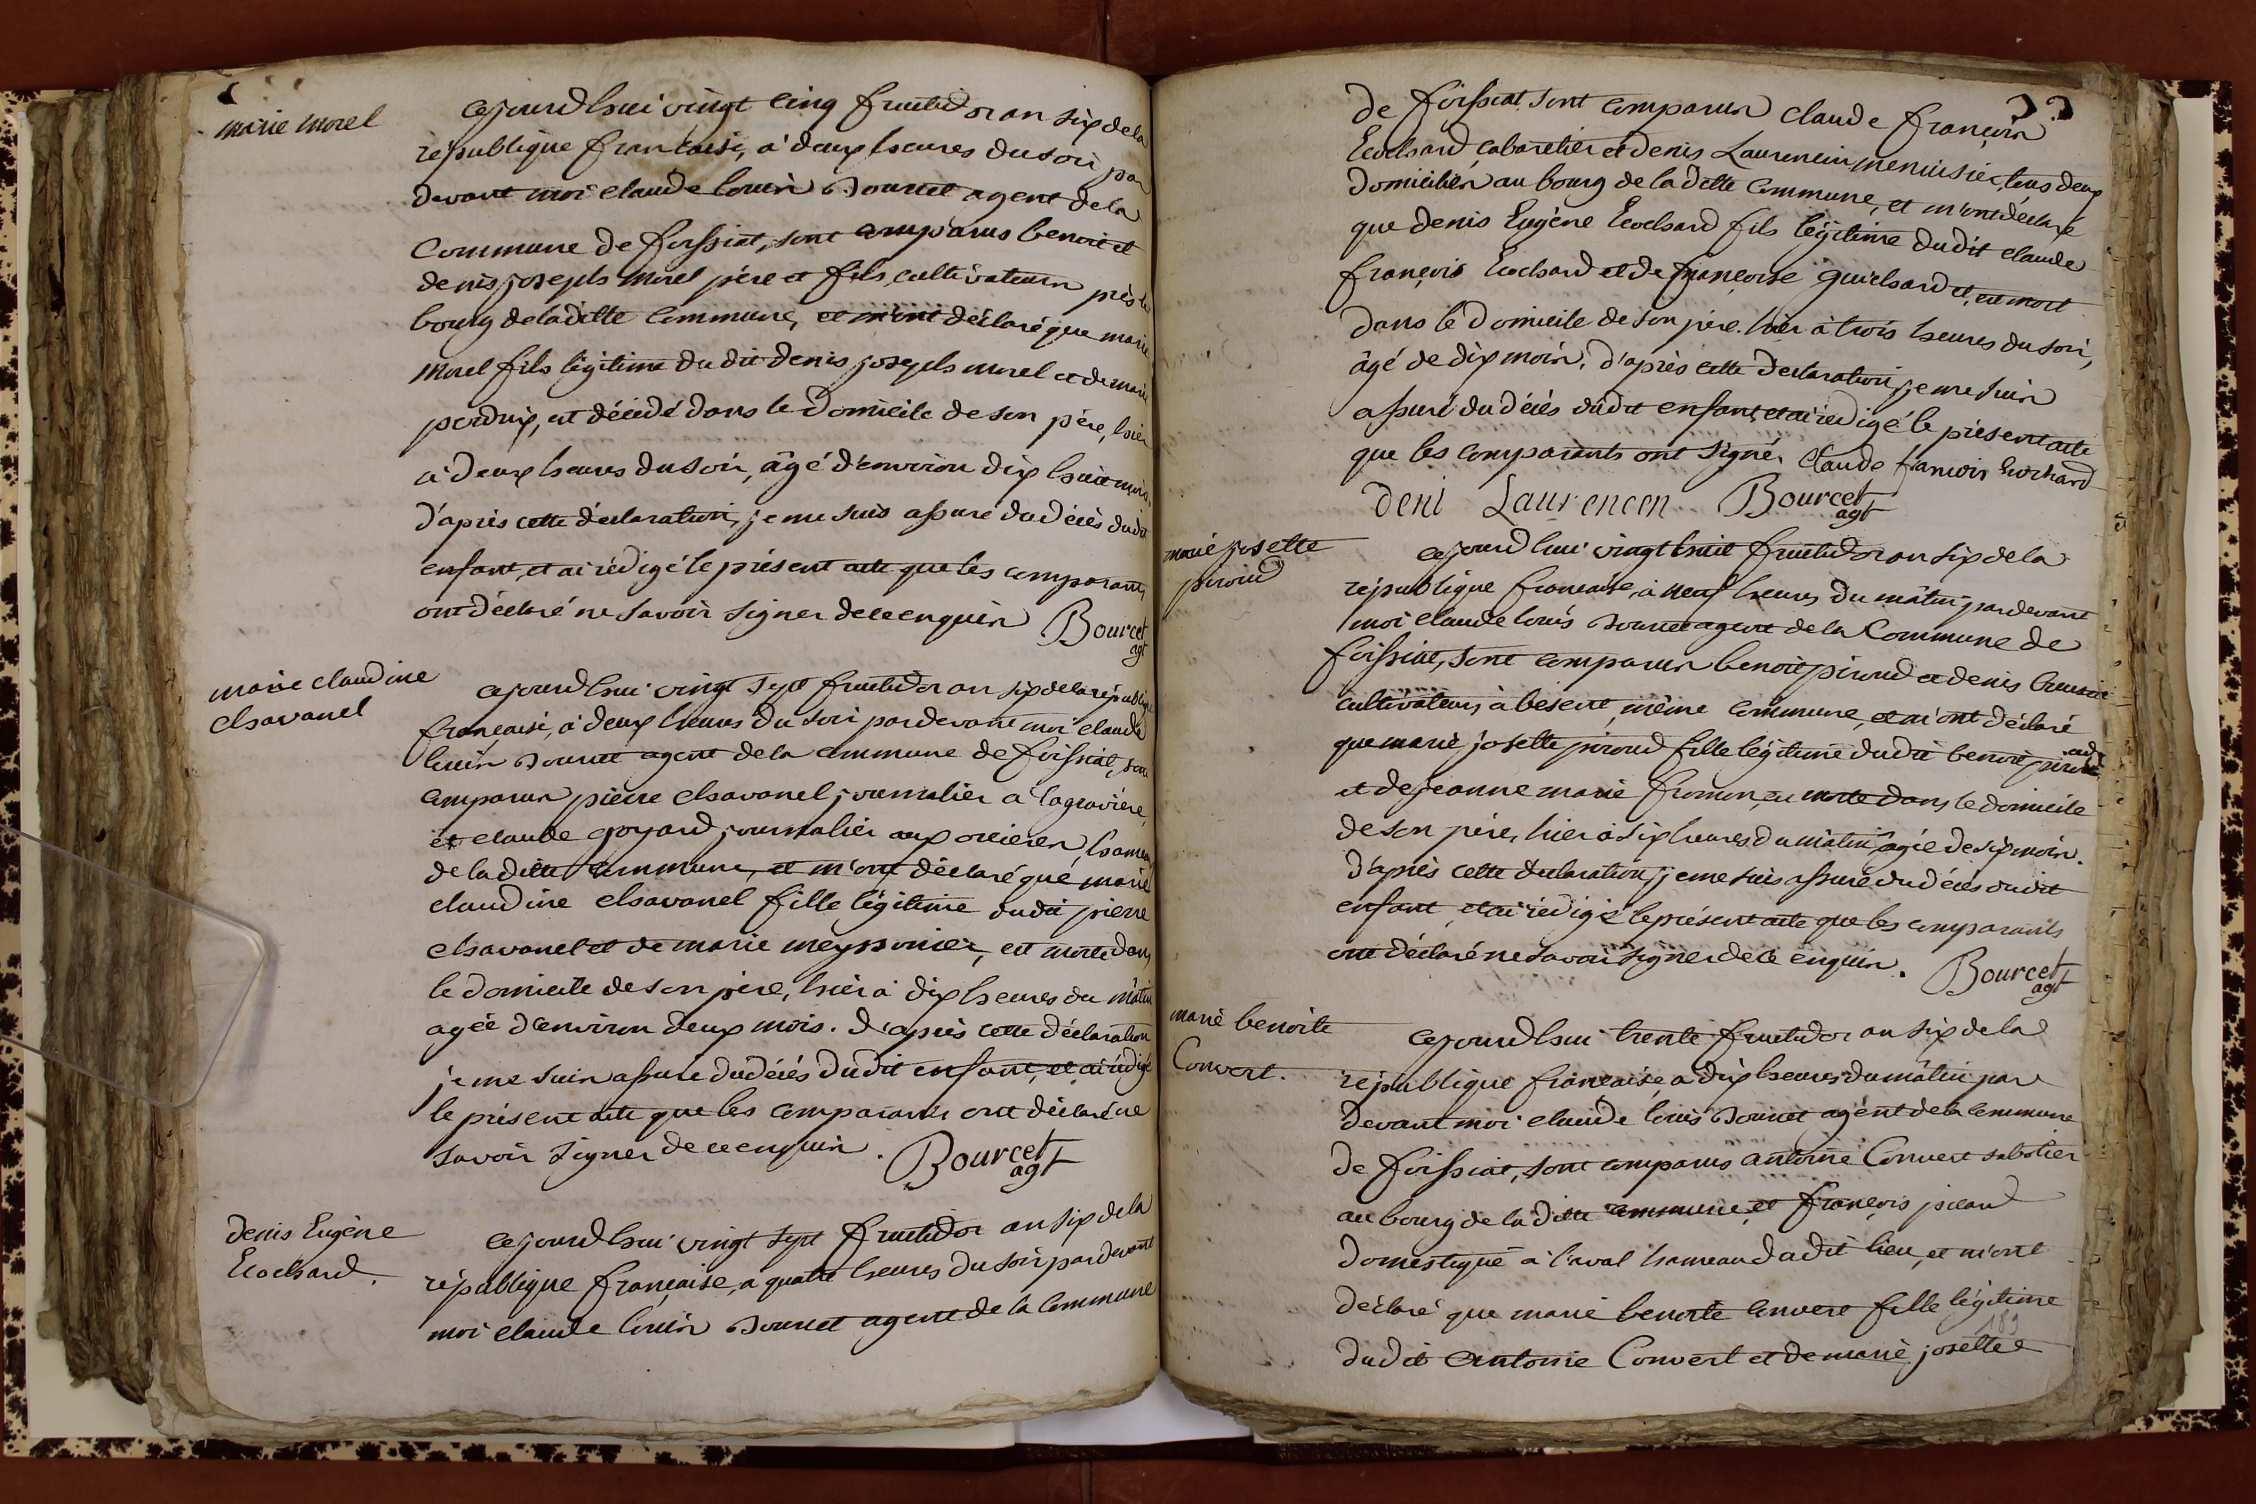 marie morel
cejourd'hui vingt cinq fructidor an six de la
république francaise, à deux heures du soir par
devant moi claude louis Bourcet agent de la
commune de foissiat, sont comparus benoit et
denis joseph morel père et fils, cultivateurs près le
bourg de la ditte commune, et m'ont déclaré que marie
morel fils légitime du dit denis joseph morel et de marie
perdrix, est décédé dans le domicile de son père, hier
à deux heures du soir, âgé d'environ dix huit mois.
d'après cette déclaration, je me suis assuré du décès dudit
enfant, et ai rédigé le présent acte que les comparants
ont déclaré ne savoir signer de ce enquis Bourcet
agt
marie claudine
chavanel
cejourd'hui vingt sept fructidor an six de la république
française, à deux heures du soir pardevant moi claude
louis Bourcet agent de la commune de foissiat, sont
comparus pierre chavanel journalier à lagravière,
et claude goyard journalier aux orcières, hameaux
de la ditte commune, et m'ont déclaré que marie
claudine chavanel fille légitime dudit pierre
chavanel et de marie meyssonier, est morte dans
le domicile de son père, hier à dix heures du mâtin
agée d'environ deux mois. d'après cette déclaration
je me suis assuré du décès dudit enfant, et ai rédigé
le présent acte que les comparants ont déclaré ne
savoir signer de ce enquis. Bourcet
agt
denis Eugène
Ecochard.
cejourd'hui vingt sept fructidor an six de la
république française, a quatre heures du soir pardevant
moi claude louis Bourcet agent de la commune
de foissiat sont comparus claude françois
Ecochard, cabaretier et denis Laurencin menuisier, tous deux
domiciliés au bourg de la ditte commune, et m'ont déclaré
que denis Eugène Ecochard fils légitime dudit claude
françois Ecochard et de françoise guichard, est mort
dans le domicile de son père. hier à trois heures du soir,
âgé de dix mois. d'après cette déclaration, je me suis
assuré du décès dudit enfant, et ai rédigé le présent acte
que les comparants ont signé. Claude francois Ecochard
deni Laurencen Bourcet
agt
marie josette
piroud
cejourd'hui vingt huit fructidor an six de la
république francaise, à neuf heures du mâtin, pardevant
moi claude louis Bourcet agent de la Commune de
foissiat, sont comparus benoit piroud et denis
cultivateurs à béséret, même commune, et m'ont déclaré
que marie josette piroud fille légitime dudit benoit piroud
et de jeanne marie fromon, est morte dans le domicile
de son père, hier à six heures du mâtin, âgée de six mois.
d'après cette déclaration, je me suis assuré du décès dudit
enfant et ai rédigé le présent acte que les comparants
ont déclaré ne savoir signer de ce enquis. Bourcet
agt
marie benoite
Convert.
cejourd'hui trente fructidor an six de la
république française, a dix heures du mâtin par
devant moi claude louis Bourcet agent de la commune
de foissiat, sont comparus antoine Convert sabotier
au bourg de la ditte commune, et françois picard
domestique à l'aval hameau dudit lieu, et m'ont
déclaré que marie benoite convert fille légitime
dudit antoine Convert et de marie josette
189